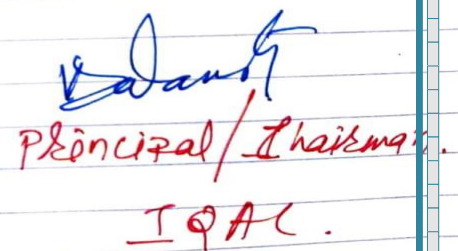 Principal/Chairman.
IQAC.